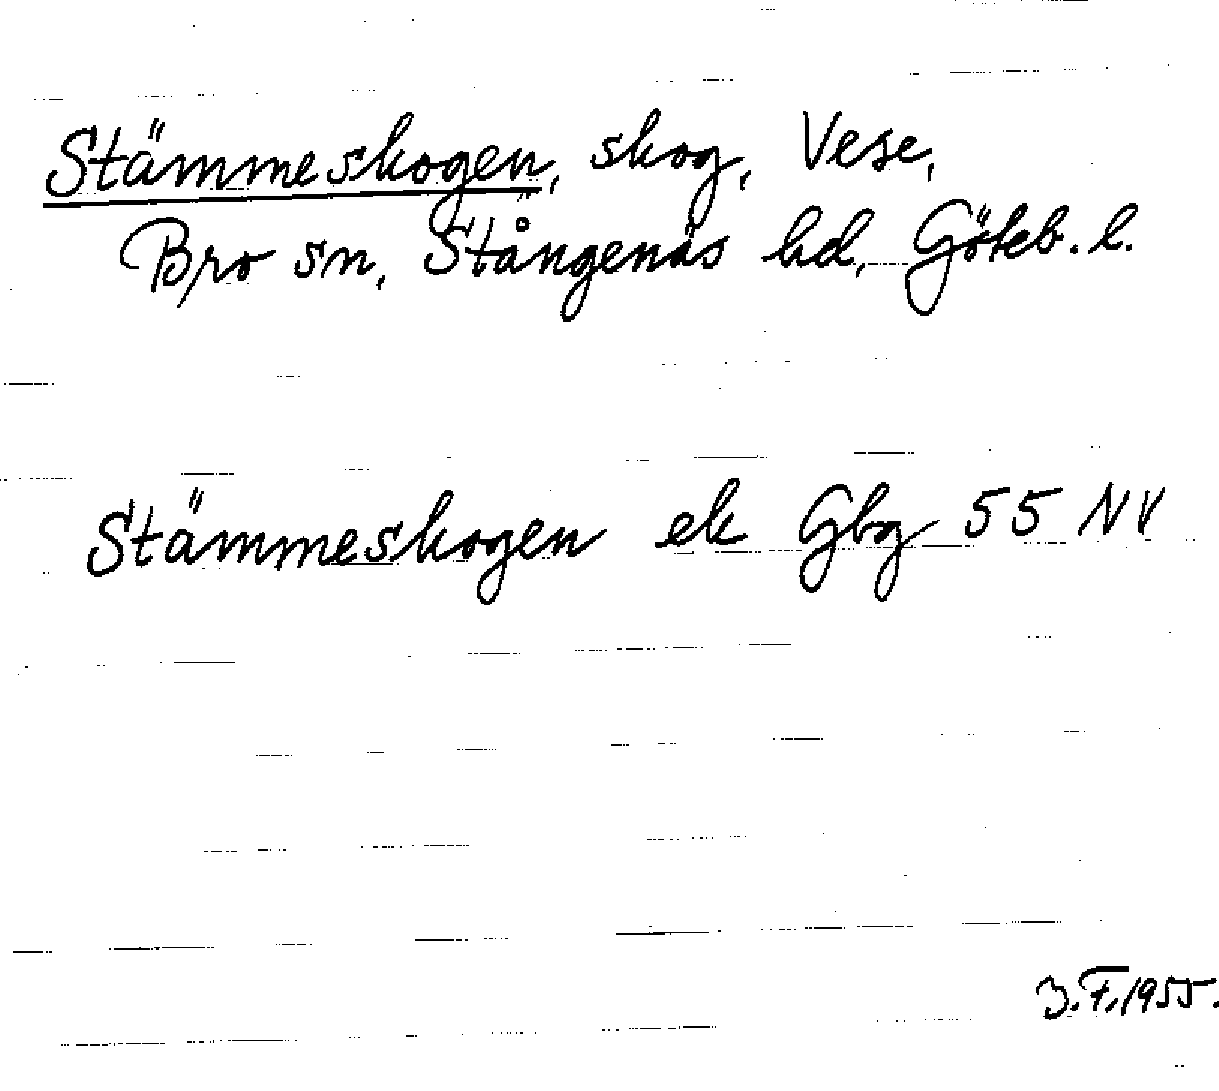 Stämmeskogen, skog, Vese,
Bro sn, Stångenäs hd, Göteb. l.
Stämmeskogen ek Gbg 55 NV
1955.